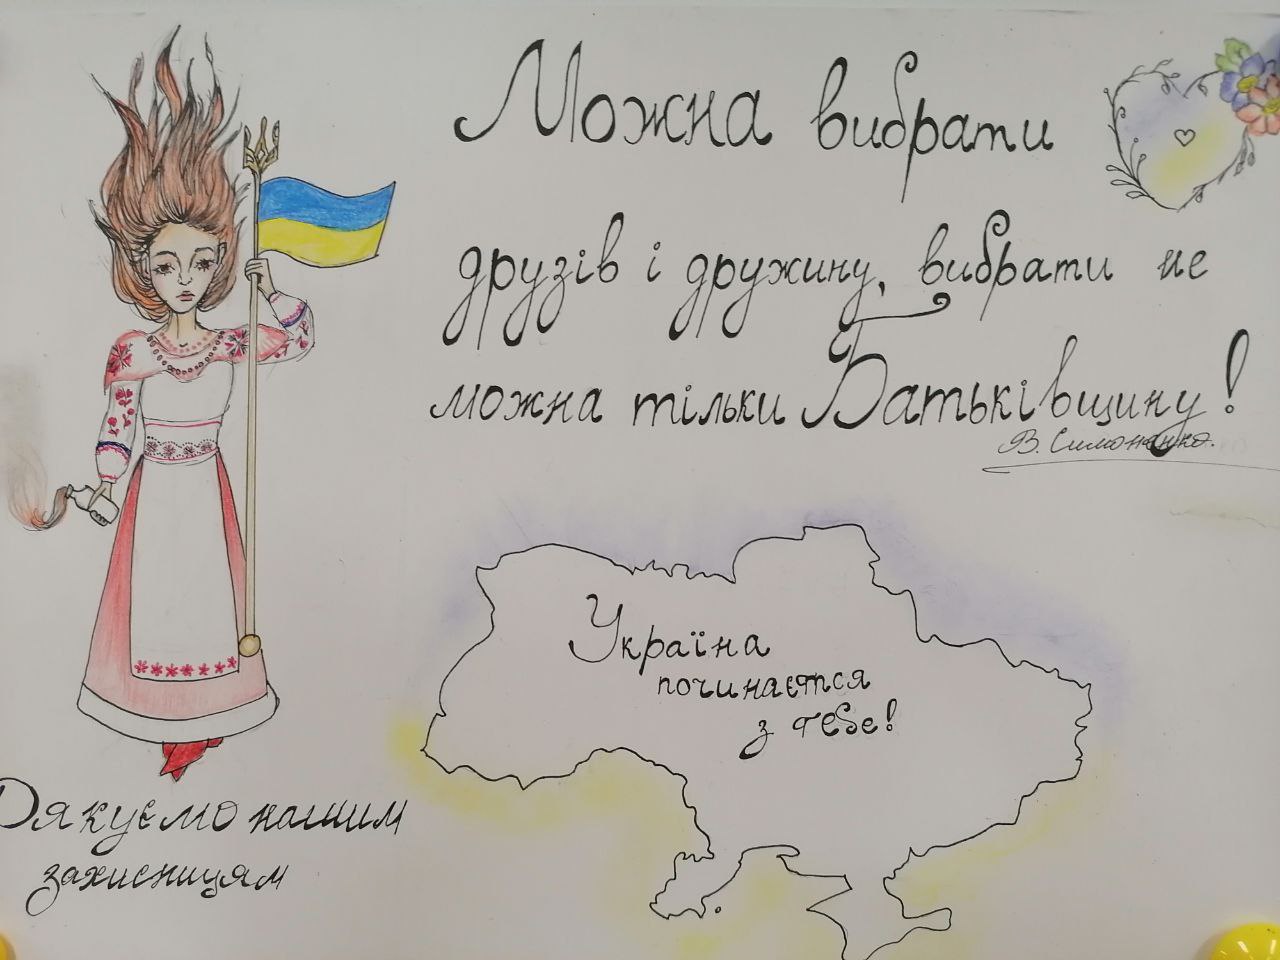 Можна вибрати
друзів і дружину, вибрати не
можна тільки Батьківщину!
В. Симоненко.
Україна
починається
з тебе!
Дякуємо нашим
захисницям